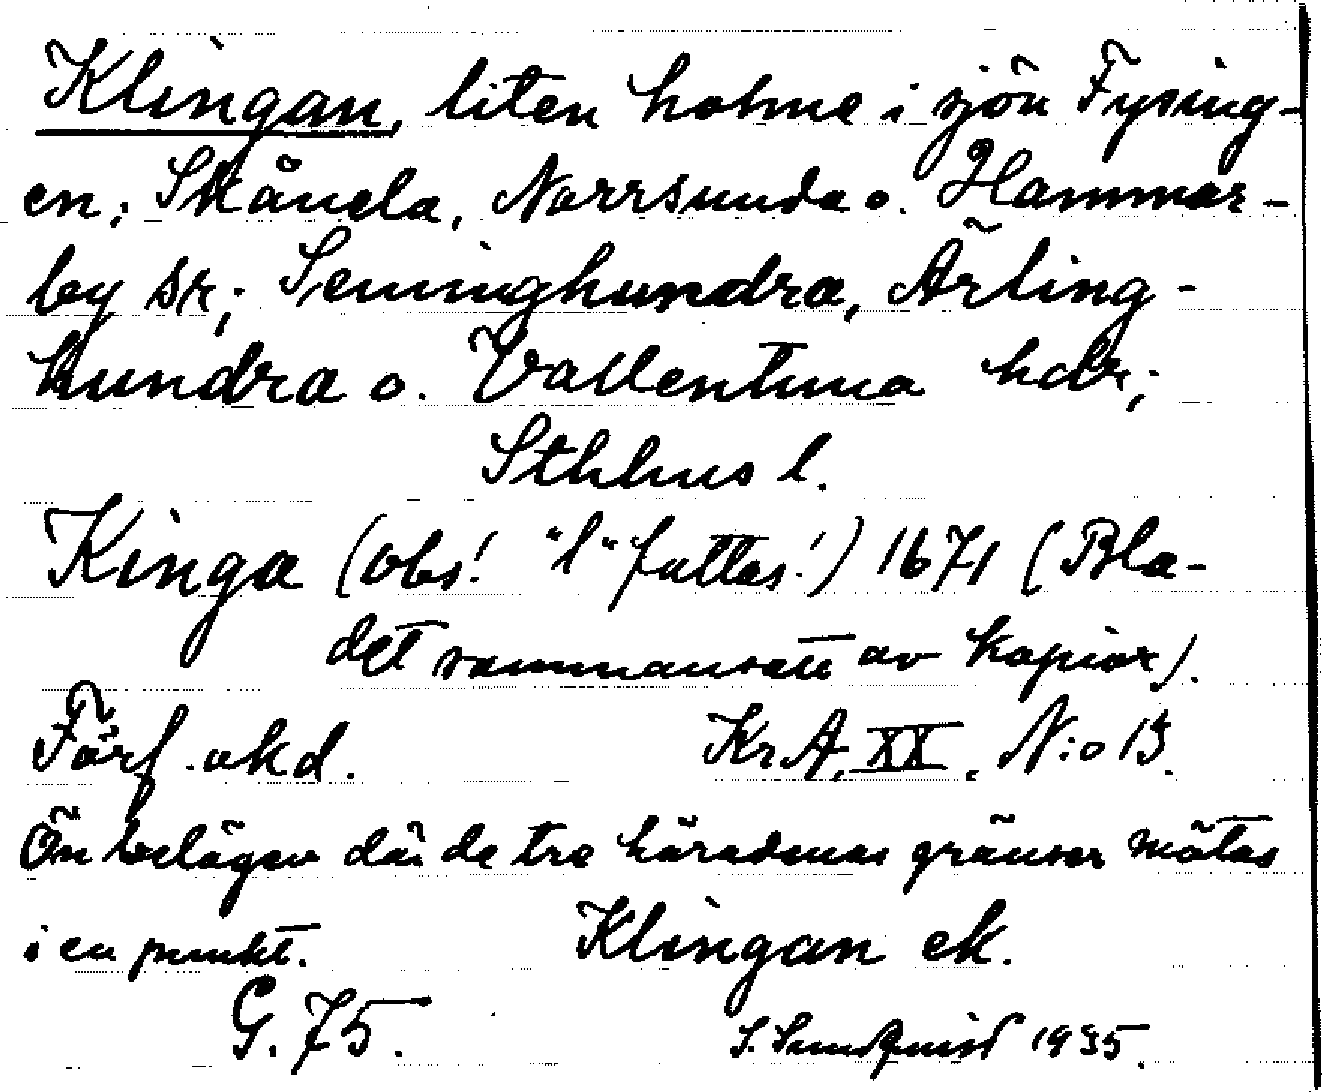 Klingan, liten holme i sjön Fysing-
en; Skånela, Norrsunda o. Hammar-
by sr; Seminghundra, Ärling-
hundra o. Vallentuna hdr;
Sthlms l.
Kinga (obs! "l" fattas!) 1671 (Bla-
det sammansatt av kopior).
Förf. okd. Kr.A. XX. N:o 13.
Ön belägen där de tre häradernas gränser mötas
i en punkt. Klingan ek.
G. 75. S. Sundquist 1935.